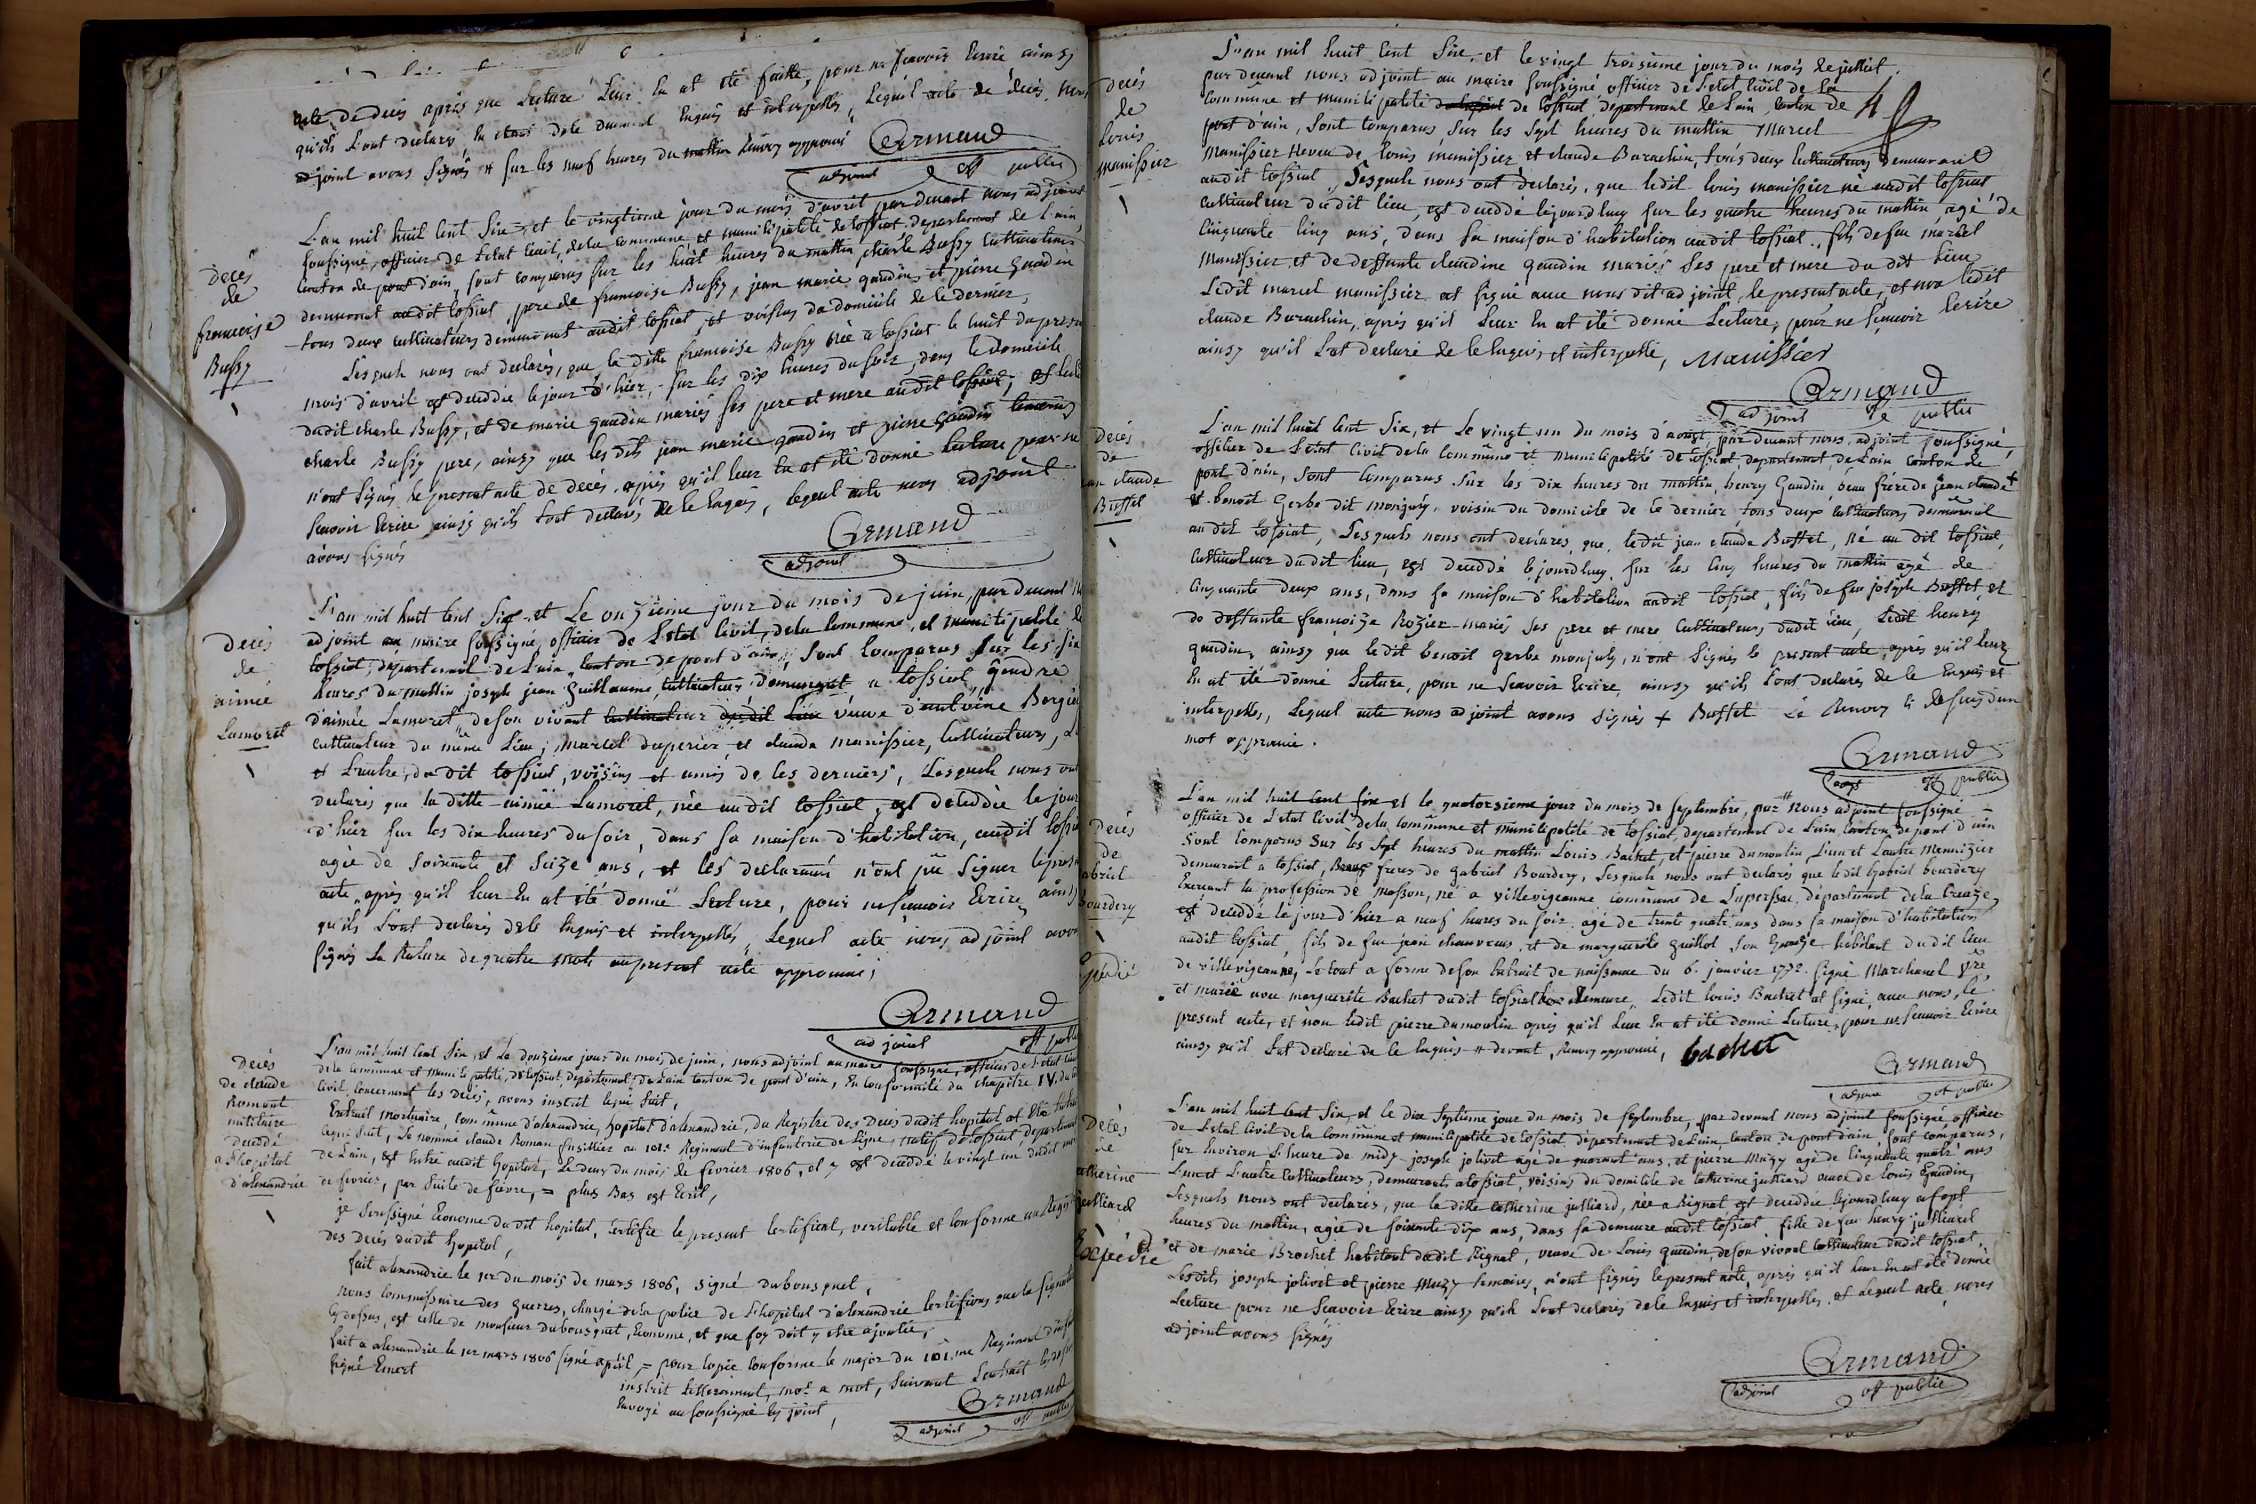 acte de decés après que Lecture Leur En at été faitte, pour ne sçavoir Ecrire ainsy
qu'ils L'ont déclaré, Enquis et interpellés, Lequel acte de décés, nous
adjoint avons Signés # sur les neuf heures du mattin Renvoy approuvé
Armand
adjoint off public
Decés
de
francoise
Bussy
L'an mil huit cent Six, et le vingtieme jour du mois d'avril par devant nous adjoint
soussigné, officier de l'etat Civil, de la commune et municipalité de tossiat departement de L'ain,
Canton de pont d'ain, sont comparus sur les huit heures du mattin charle Bussy Cultivateur
demeurant audit tossiat, pere de francoise Bussy, jean marie gaudin, et pierre Gaudin
tous deux cultivateurs demeurant audit tossiat, et voisins du domicile de le dernier,
Lesquels nous ont declarés, que la ditte francoise Bussy née a tossiat le huit du present
mois d'avril est decedée le jour d'hier, sur les dix heures du soir, dans le domicile
dudit charle Bussy, et de marie gaudin mariés ses pere et mere audit tossiat, et ledit
charle Bussy pere, ainsy que les dits jean marie gaudin et pierre Gaudin temoins
n'ont Signés le present acte de decés, après qu'il leur En at été donné Lecture pour ne
scavoir Ecrire ainsy qu'ils L'ont declarés de le Enquis, lequel acte nous adjoint
avons signés
Armand
adjoint
Decés
de
aimée
Lamoret
L'an mil huit cent Six, et Le onzieme jour du mois de juin, par devant
adjoint au maire soussigné, officier de L'etat Civil, de la Commune, et municipalité de
tossiat, departement de L'ain, Canton de pont d'ain, sont Comparus sur les six
heures du mattin joseph jean Guillaume, Cultivateur, demeurant a tossiat, gendre
d'aimée Lamoret de son vivant cultivateur dudit Lieu veuve d'antoine Bergier
cultivateur du même Lieu; marcel duperier et claude manissier, Cultivateurs, L'un
et L'autre, du dit tossiat, voisins et amis de les derniers, Lesquels nous ont
declarés que la ditte aimée Lamoret, née audit tossiat, est décedée le jour
d'hier sur les dix heures du soir, dans sa maison d'habitation, audit tossiat
agée de soixante et Seize ans, et les declarants n'ont pû signer le present
acte, après qu'il leur En at été donné Lecture, pour ne scavoir Ecrire, ainsy
qu'ils L'ont declarés de le Enquis et interpellés, Lequel acte nous adjoint avons
signés La Rature de quatre mots au present acte approuvée;
Armand
adjoint off public
Decés
de claude
Romant
militaire
Decedé
a L'hopital
d'alexandrie
L'an mil huit cent Six, et Le douzieme jour du mois de juin, nous adjoint au maire soussigné, officier de L'etat Civil
de la Commune et municipalité, de tossiat, departement, de L'ain canton de pont d'ain, En conformité du chapitre IV, du code
Civil, concernant les decés, avons inscrit ce qui suit,
Extrait mortuaire, commune d'alexandrie, hopital d'alexandrie, du Registre des Decés dudit hopital at été Extrait
ce qui suit, Le nommé claude Roman fusillier au 101e Regiment d'infanterie de Ligne, natif de tossiat departement
de L'ain, est Entré audit hopital, Le deux du mois de fevrier 1806, et y est decedé le vingt un dudit mois
de fevrier, par Suite de fievre, = plus Bas est Ecrit,
je soussigné Econome dudit hopital, certifie le present certificat, veritable et conforme au Registre
des Decés dudit hopital,
fait alexandrie le 1er du mois de mars 1806, signé dubousquet,
nous commissaire des guerres, chargé de la police de l'hopital d'alexandrie certifions que la signature
cy dessus, est celle de monsieur dubousquet, Econome, et que foy doit y etre ajoutée;
fait a alexandrie le 1er mars 1806 signé april, = pour copie conforme le major du 101me Regiment
signé Emert
inscrit litteralement, mot a mot, suivant L'extrait
Envoyé au soussigné cy joint,
Armand
adjoint off public
Decés
de
Louis
manissier
L'an mil huit cent Six, et le vingt troisieme jour du mois de juillet
par devant nous adjoint au maire soussigné officier de L'etat Civil de La
Commune et municipalité de tossiat departement de L'ain, canton de
pont d'ain, sont comparus sur les sept heures du mattin Marcel
Manissier Neveu de louis manissier et claude Barachin, tous deux cultivateurs demeurant
audit tossiat, Lesquels nous ont declarés, que ledit Louis manissier né audit tossiat
cultivateur dudit lieu, est decedé cejourdhuy sur les quatre heures du mattin, agé de
Cinquante Cinq ans, dans sa maison d'habitation audit tossiat, fils de feu marcel
Manissier, et de deffunte claudine gaudin mariés ses pere et mere du dit Lieu
Ledit marcel manissier at signé avec nous dit adjoint, le present acte, et non ledit
claude Barachin, après qu'il leur En at été donné Lecture, pour ne sçavoir Ecrire
ainsy qu'il L'at declaré de le Enquis et interpellé, Manissier
Armand
adjoint off public
Decés
de
jean claude
Buffet
L'an mil huit cent Six, et le vingt un du mois d'aoust, par devant nous, adjoint soussigné,
officier de L'etat Civil de la commune et municipalité de tossiat, departement de L'ain canton de
pont d'ain, sont comparus sur les dix heures du mattin, henry Gaudin, beau frere de jean claude +
et benoit Gerbe dit monjuly, voisin du domicile de le dernier, tous deux cultivateurs demeurant
audit tossiat, Lesquels nous ont declarés, que ledit jean claude Buffet, né au dit tossiat,
Cultivateur dudit lieu, est decedé cejourdhuy, sur les Cinq heures du mattin agé de
Cinquante deux ans, dans sa maison d'habitation audit tossiat, fils de feu joseph Buffet, et
de deffunte francoize Rozier mariés ses pere et mere Cultivateurs dudit Lieu, Ledit henry
gaudin, ainsy que ledit benoit gerbe monjuly, n'ont signés le present acte, après qu'il leur
En at été donné Lecture, pour ne scavoir Ecrire, ainsy qu'ils L'ont declarés de le Enquis et
interpellés, Lequel acte nous adjoint avons signés + Buffet Le Renvoy d'un
mot approuvé.
Armand
adjt off public
Decés
de
gabriel
Bourdery
Expedié
L'an mil huit cent six et le quatorzieme jour du mois de septembre, par # nous adjoint soussigné
officier de L'etat Civil de la commune et municipalité de tossiat, departement de L'ain, canton de pont d'ain
sont comparus sur les sept heures du mattin Louis Bachet, et pierre dumoulin, L'un et L'autre Mennizier
demeurant a tossiat, Beaux freres de Gabriel Bourdery, Lesquels nous ont declarés que ledit Gabriel bourdery
Exercant la profession de masson, né a villevigeanne commune de Lupersac, département de la Creuze,
est decedé le jour d'hier a neuf heures du soir, agé de trente quatre ans dans sa maison d'habitation
audit tossiat, fils de feu jean et de marguerite Guillot son Epouze habitant dudit lieu
de villevigeanne, Le tout a forme de son Extrait de naissance du 6. janvier 1772. signé Marchand
et marié avec marguerite Bachet dudit tossiat y demeure, Ledit Louis Bachet at signé, avec nous, le
present acte, et non ledit pierre dumoulin après qu'il leur En at été donné Lecture, pour ne sçavoir Ecrire
ainsy qu'il L'at declaré de le Enquis # devant, Renvoy approuvé, bachet
Armand
adjoint off public
Decés
de
catherine
juilliard
Expédié
L'an mil huit cent Six, et le dix Septieme jour du mois de septembre, par devant nous adjoint soussigné, officier
de L'etat Civil de la Commune et municipalité de tossiat, departement de L'ain, canton de pont d'ain, sont comparus,
sur Environ L'heure de midy joseph jolivet agé de quarante ans, et pierre Mugy agé de cinquante quatre ans
L'un et L'autre Cultivateurs, demeurants a tossiat, voisins du domicile de catherine juilliard veuve de Louis Gaudin,
Lesquels nous ont declarés, que la ditte catherine juilliard, née a Rignat est decedée cejourdhuy a sept
heures du mattin, agée de soixante dix ans, dans sa demeure audit tossiat fille de feu henry juilliard
et de marie Brochet habitant dudit Rignat, veuve de Louis gaudin, de son vivant cultivateur dudit tossiat,
Lesdits joseph jolivet et pierre Mugy temoins, n'ont signés le present acte, après qu'il leur En at été donné
Lecture pour ne Scavoir Ecrire ainsy qu'ils L'ont declarés de le Enquis et interpellés, et Lequel acte, nous
adjoint avons signés
Armand
adjoint off public